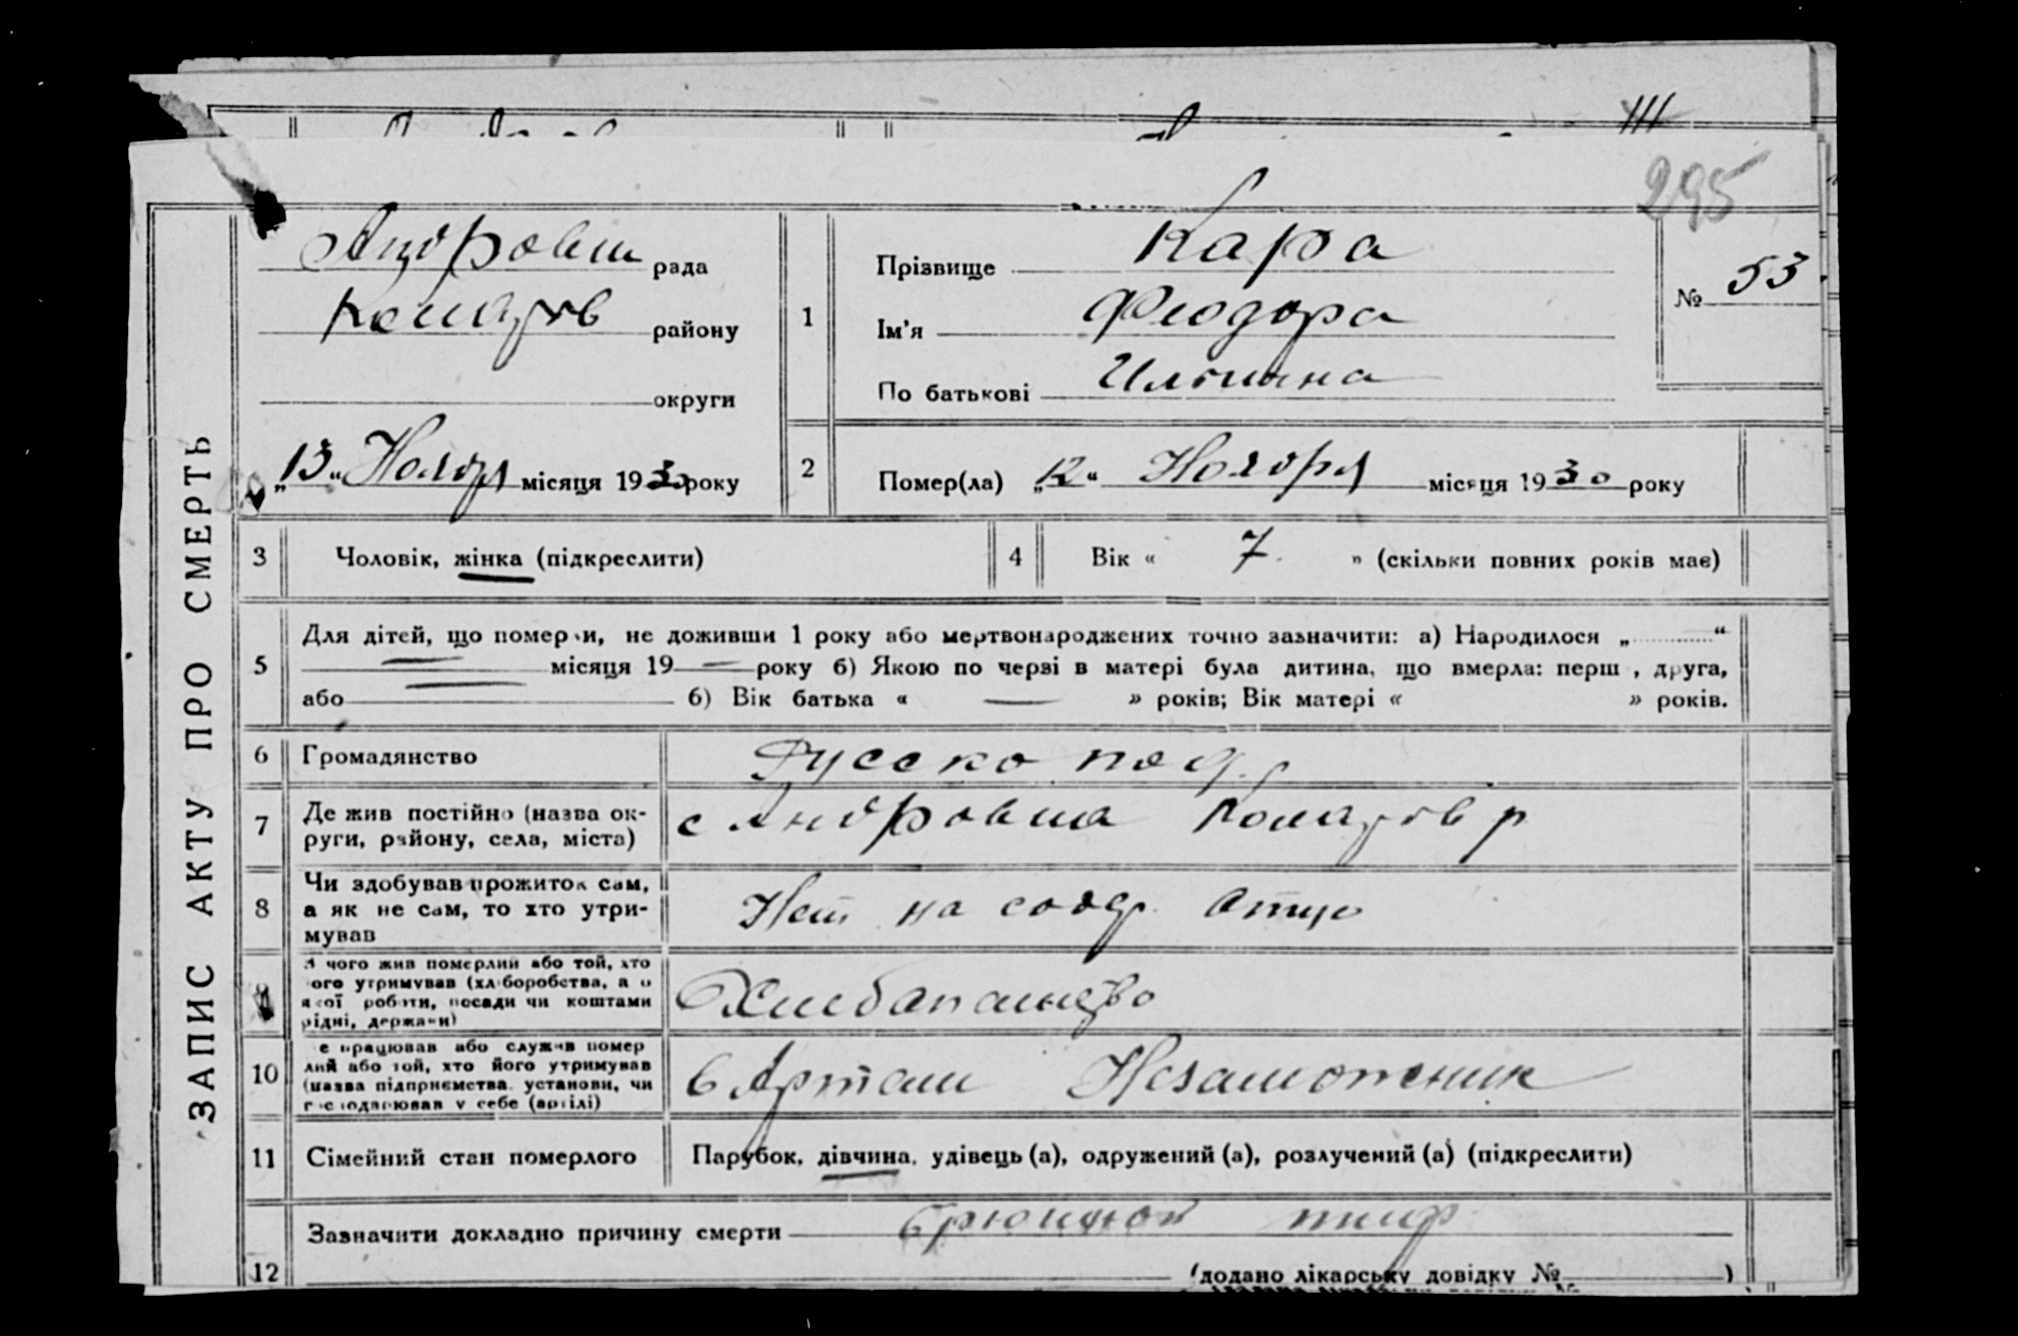 295
ЗАПИС АКТУ ПРО СМЕРТЬ
Андровка рада
Комаров району
округи
„13“ Ноября місяця 1930 року
1
Прізвище Кара
Ім'я Феодора
По батькові Ильинина
№ 53
2
Помер(ла) „12“ Ноября місяця 1930 року
3 Чоловік, жінка (підкреслити)
4 Вік « 7 » (скільки повних років має)
5
Для дітей, що померли, не доживши 1 року або мертвонароджених точно зазначити: а) Народилося „ “
місяця 19 року б) Якою по черзі в матері була дитина, що вмерла: перш , друга,
або б) Вік батька « » років; Вік матері « » років.
6 Громадянство Русско под.
7
Де жив постійно (назва ок-
руги, району, села, міста)
с Андровка Комаров р
8
Чи здобував прожиток сам,
а як не сам, то хто утри-
мував
Нет на содр. Отца
чого жив померлий або той, хто
ого утримував (хліборобства, а о
якої роботи, посади чи коштами
рідні, держави)
Хлебопашество
10
е працював або служив помер
лий або той, хто його утримував
(назва підприємства, установи, чи
господарював у себе (артілі)
в Артели Незаможник
11 Сімейний стан померлого
Парубок, дівчина, удівець (а), одружений (а), розлучений (а) (підкреслити)
12
Зазначити докладно причину смерти брюшной тиф
(додано лікарську довідку № )